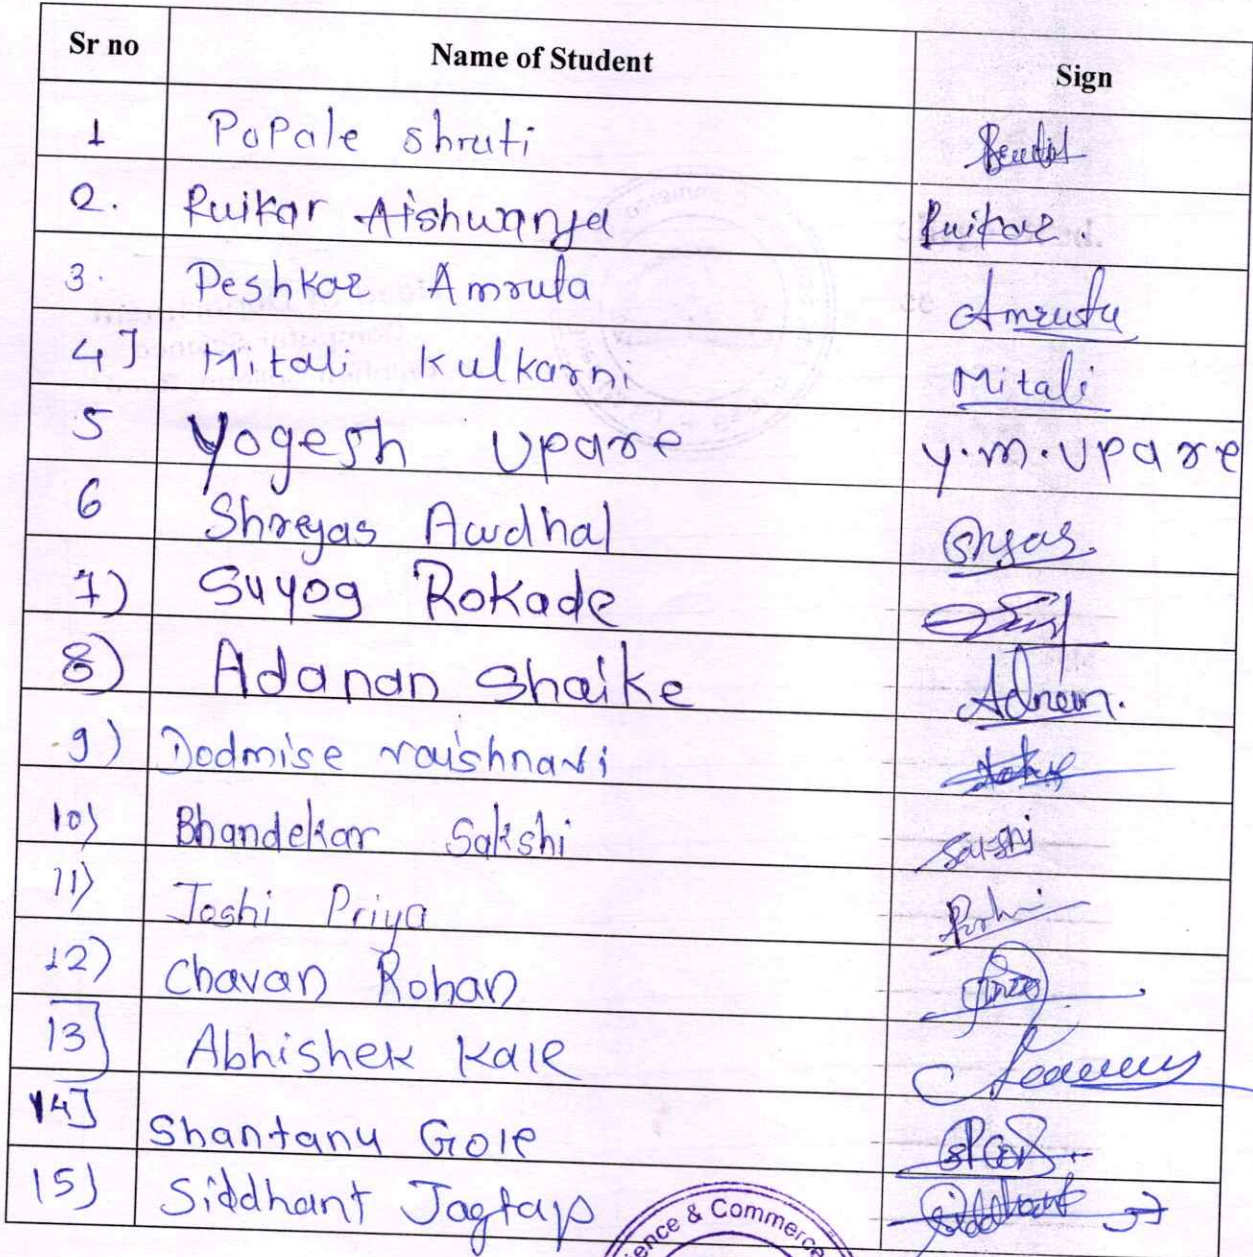 Sr no Name of Student Sign
1 Popale shruti
2. Ruikar Aishwarya Ruikar.
3. Peshkar Amruta Amruta
4] Mitali Kulkarni Mitali
5 Yogesh Upare Y.M.Upare
6 Shreyas Awdhal
7) Suyog Rokade
8) Adanan Shaike Adnan.
9) Dodmise vaishnavi
10) Bhandekar Sakshi
11) Joshi Priya
12) Chavan Rohan
13] Abhishek Kale
14] Shantanu Gole
15) Siddhant Jagtap Siddhant
ence & Commerce